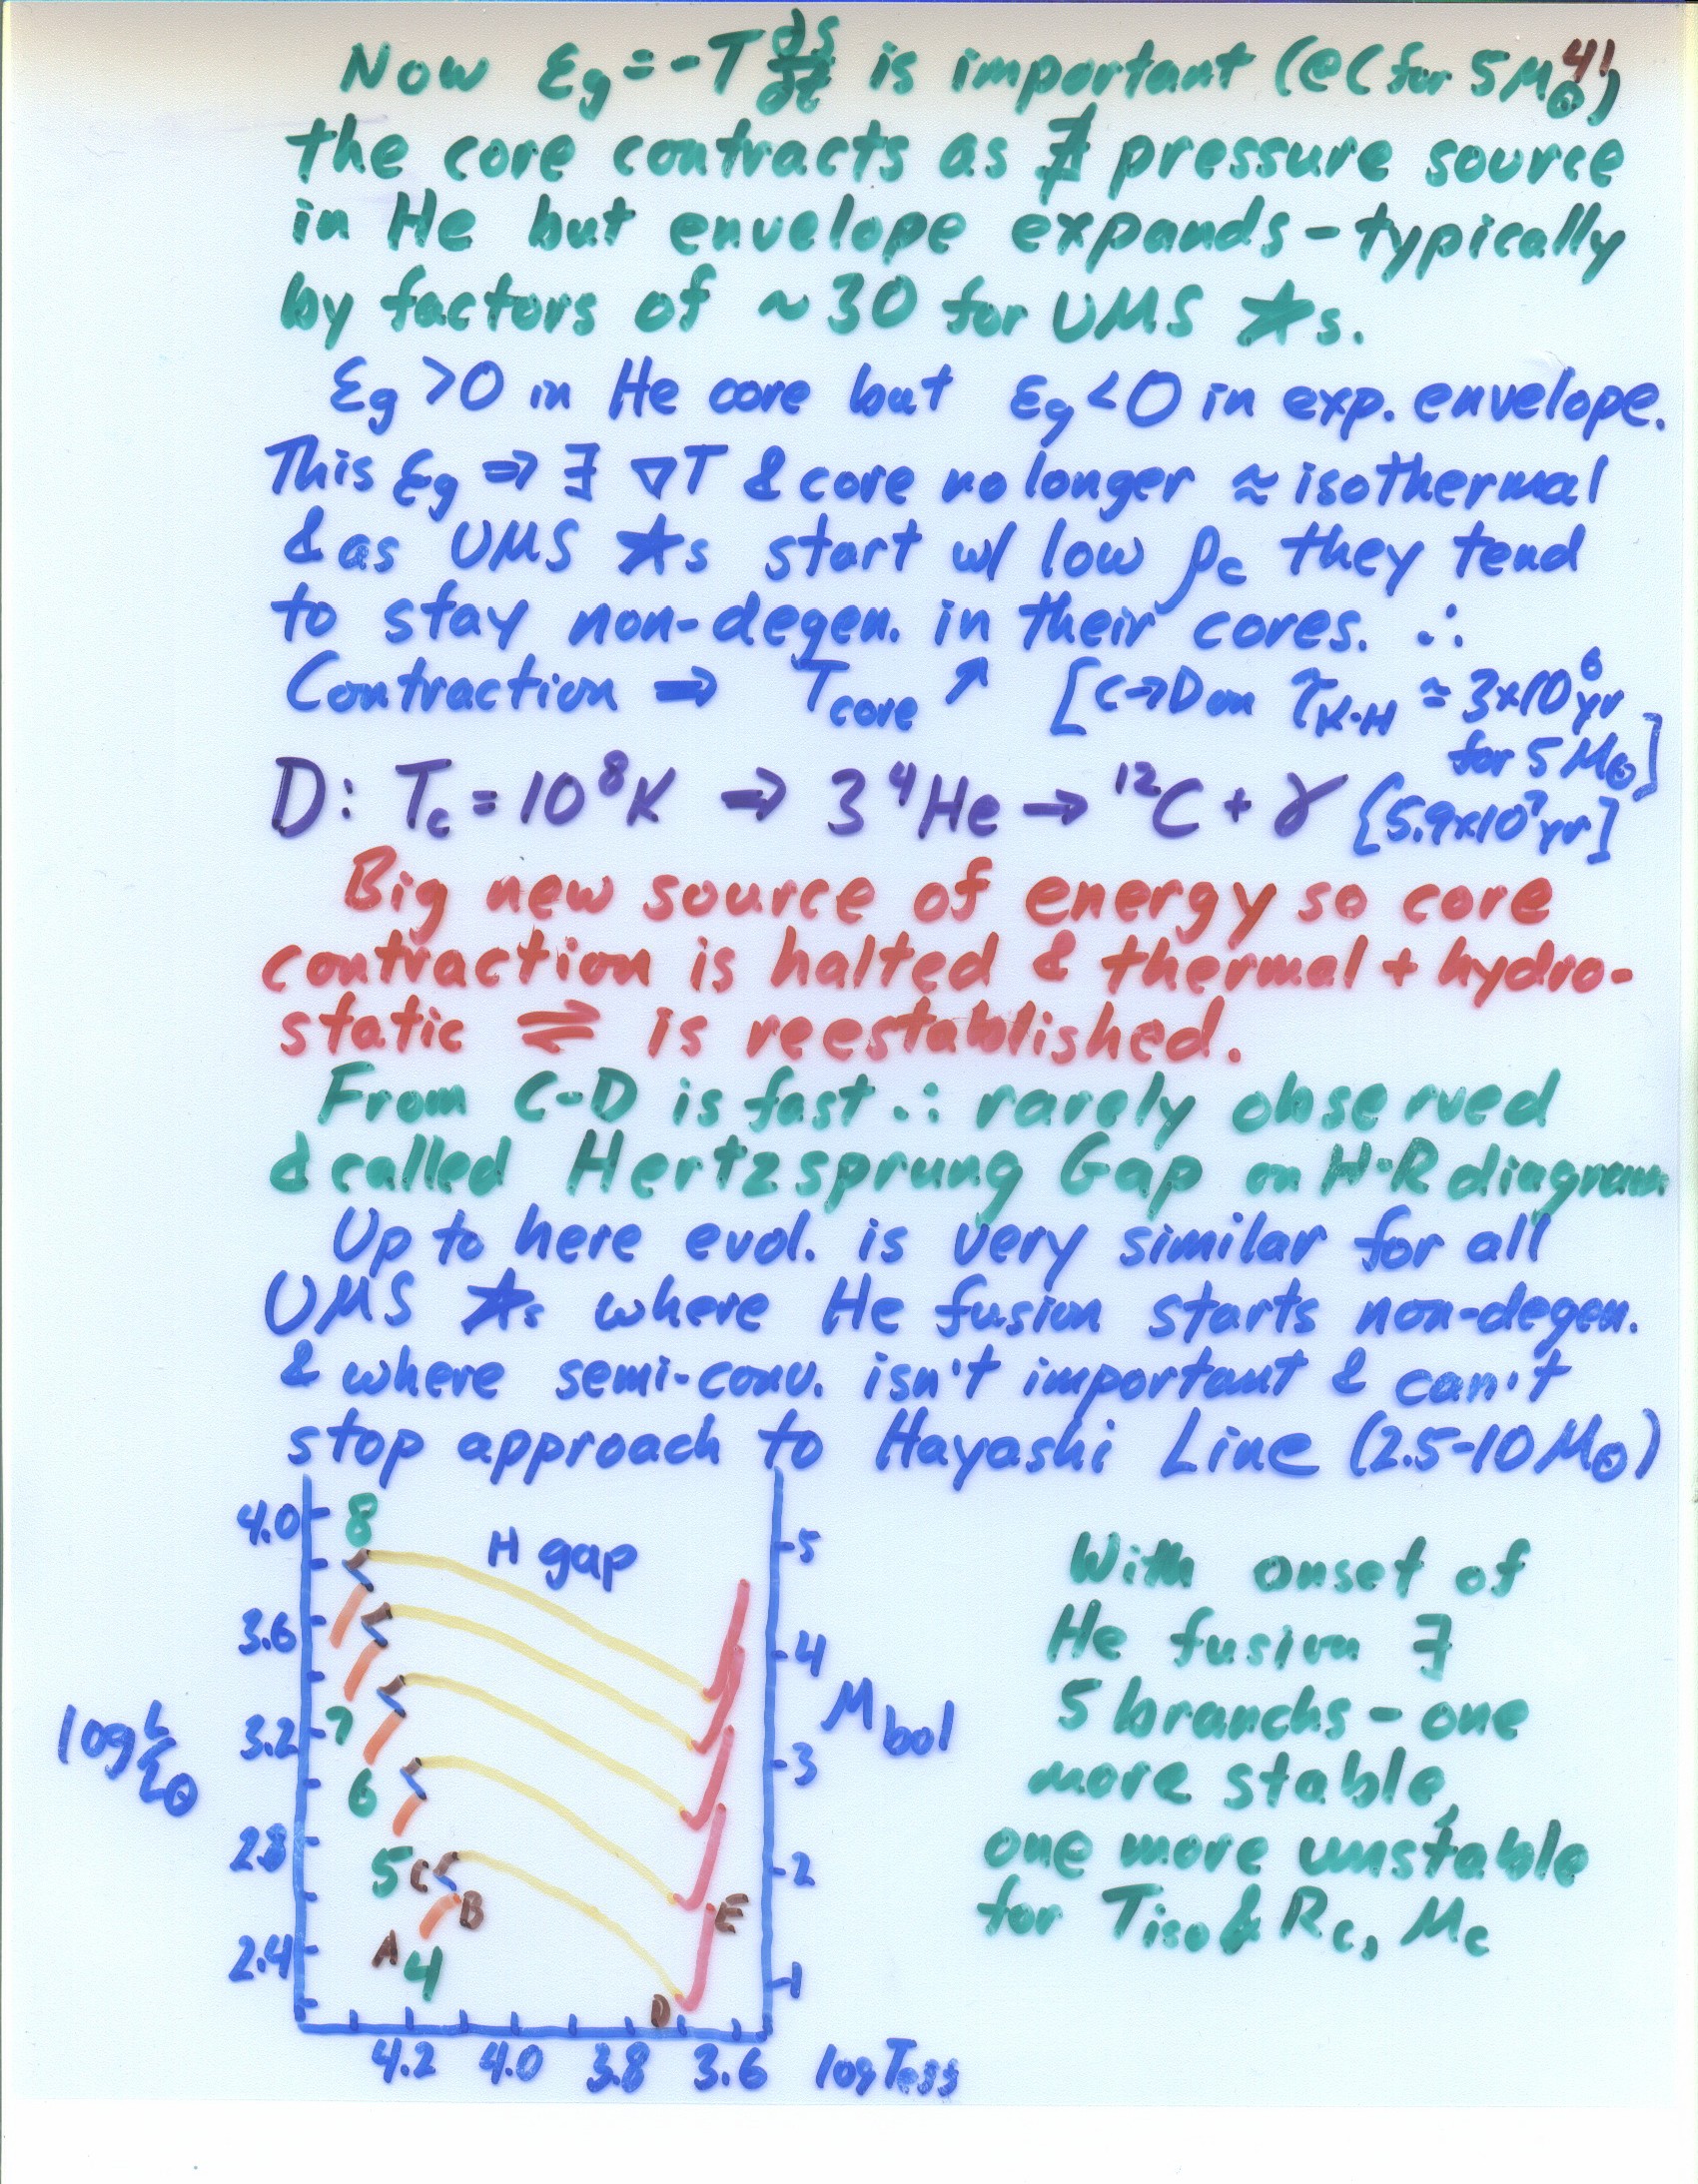 41
Now Ɛg = -T ds/dt is important (@C for 5M⊙)
the core contracts as ∄ pressure source
in He but envelope expands - typically
by factors of ~30 for UMS ★s.
Ɛg >0 in He core but Ɛg <0 in exp. envelope.
This Ɛg ⇒ ∃ ∇T & core no longer ≈ isothermal
& as UMS ★s start w/ low ρc they tend
to stay non-degen. in their cores. ∴
Contraction ⇒ Tcore ↗ [C→D on τK-H ≈ 3×10⁶ yr
for 5 M⊙]
D: Tc = 10⁸K ⇒ 3 ⁴He → ¹²C + γ [5.9×10⁷yr]
Big new source of energy so core
contraction is halted & thermal + hydro-
static ⇌ is reestablished.
From C-D is fast ∴ rarely observed
& called Hertzsprung Gap on H-R diagram
Up to here evol. is very similar for all
UMS ★s where He fusion starts non-degen.
& where semi-conv. isn't important & can't
stop approach to Hayashi Line (2.5-10 M⊙)
4.0 8 H gap 5
3.6 4
log L/L⊙ 3.2 7 Mbol
6 3
2.8 5 C 2
B E
2.4 A 4 1
D
4.2 4.0 3.8 3.6 log Teff
With onset of
He fusion ∃
5 branchs - one
more stable,
one more unstable
for Tiso & Rc, Mc